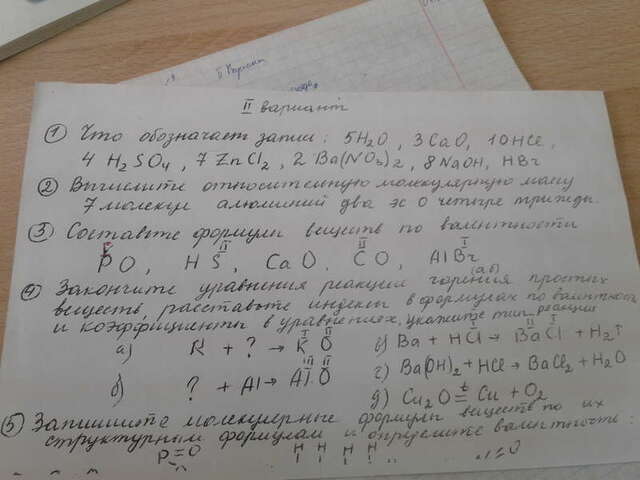 II Вариант
II вариант
① Что обозначает запись: 5H2O, 3CaO, 10HCl,
4 H2SO4, 7 ZnCl2, 2 Ba(NO3)2, 8NaOH, HBr
② Вычислите относительную молекулярную массу
7 молекул алюминий два эс о четыре трижды.
③ Составьте формулы веществ по валентности
V II II I
PO, HS, CaO, CO, AlBr
④ Закончите уравнения реакции горения простых (а,б)
веществ, расставьте индексы в формулах по валентности
и коэффициенты в уравнениях, укажите тип реакции
I II I II I
а) K + ? → K O в) Ba + HCl → BaCl + H2↑
III II
б) ? + Al → Al O г) Ba(OH)2 + HCl → BaCl2 + H2O
д) Cu2O =t Cu + O2
⑤ Запишите молекулярные формулы веществ по их
структурным формулам и определите валентность:
P=O H H H H =O